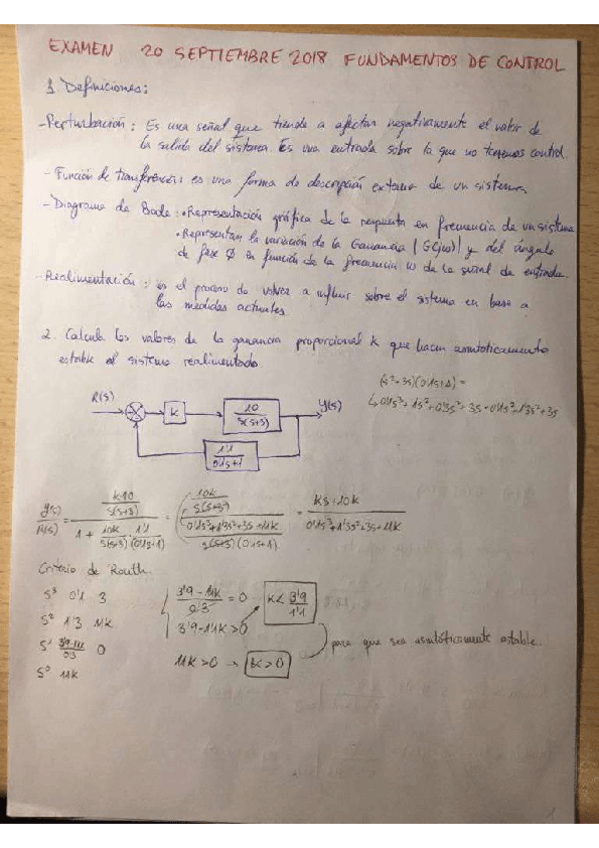 EXAMEN 20 SEPTIEMBRE 2018 FUNDAMENTOS DE CONTROL
1. Definiciones:
-Perturbación: Es una señal que tiende a afectar negativamente el valor de
la salida del sistema. Es una entrada sobre la que no tenemos control.
- Función de transferencia: es una forma de descripción externa de un sistema
- Diagrama de Bode: • Representación gráfica de la respuesta en frecuencia de un sistema
• Representan la variación de la Ganancia |G(jω)| y del ángulo
de fase Ø en función de la frecuencia ω de la señal de entrada.
-Realimentación: es el proceso de volver a influir sobre el sistema en base a
las medidas actuales
2. Calcula los valores de la ganancia proporcional K que hacen asintóticamente
estable el sistema realimentado
(s²+3s)(0'1s+1) =
↳ 0'1s³+1s²+0'3s²+3s = 0'1s³+1'3s²+3s
R(s) K 10 / s(s+3) Y(s)
1'1 / 0'1s+1
Y(s)/R(s) = (K10 / s(s+3)) / (1 + 10K / s(s+3) · 1'1 / (0'1s+1)) = (10K / s(s+3)) / ((0'1s³+1'3s²+3s+11K) / s(s+3)(0'1s+1)) = Ks+10K / 0'1s³+1'3s²+3s+11K
Criterio de Routh.
s³ 0'1 3
s² 1'3 11K
s¹ 0
s⁰ 11K
3'9-11K / 0'3 = 0
3'9-1'1K>0
K< 3'9 / 1'1
11K>0 → K>0
para que sea asintóticamente estable.
1